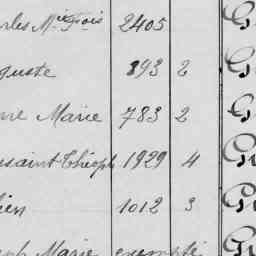 rles Mie Fois 2405 G
guste 893 2 G
rre Marie 783 2 G
ssaint Théoph 1929 4 G
lien 1012 3 G
eph Marie exempté G